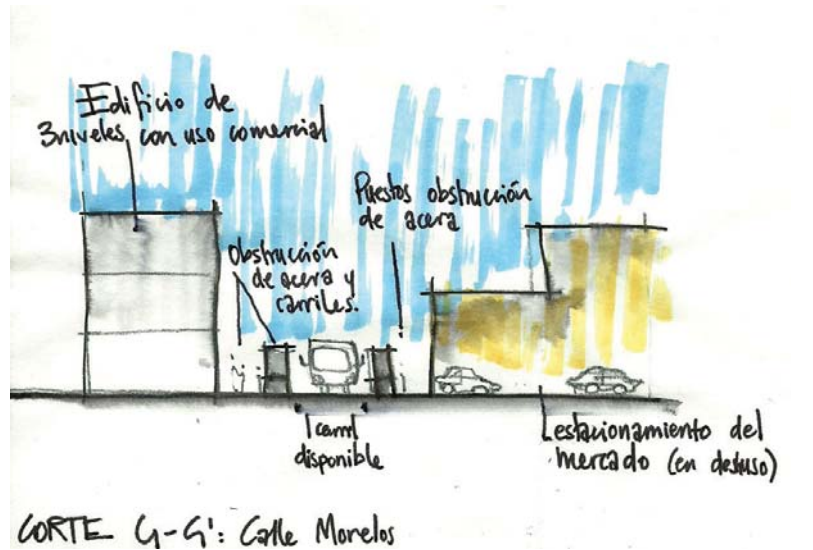 Edificio de
3niveles con uso comercial
Puestos obstrucción
de acera
Obstrucción
de acera y
carriles.
1 carril
disponible
estacionamiento del
mercado (en desuso)
CORTE G-G': Calle Morelos